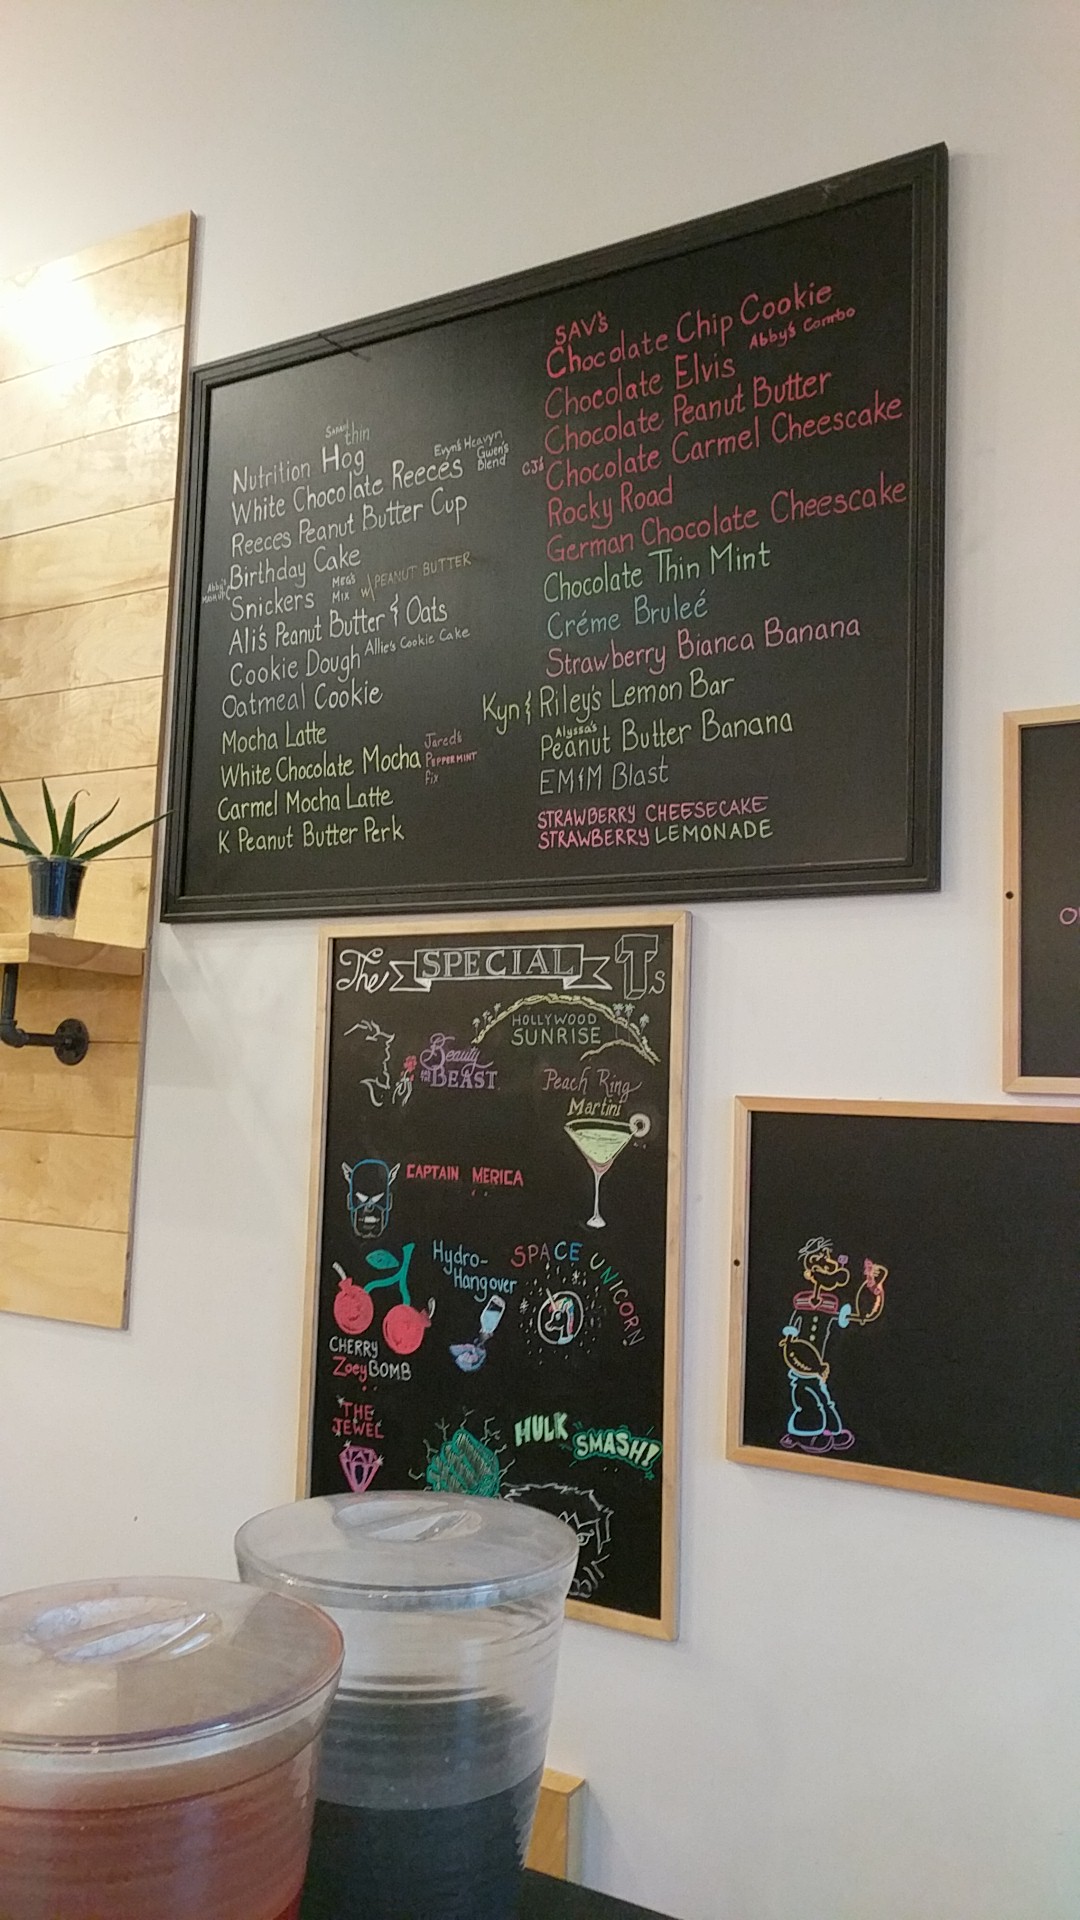 Sarah's thin
Nutrition Hog
White Chocolate Reeces Evyn's Heavyn Gwen's Blend
Reeces Peanut Butter Cup
Birthday Cake
Abby's MASHUP
Snickers MEG'S MIX w/PEANUT BUTTER
Ali's Peanut Butter & Oats
Cookie Dough Allie's Cookie Cake
Oatmeal Cookie
Mocha Latte
White Chocolate Mocha Jared's PEPPERMINT fix
Carmel Mocha Latte
K Peanut Butter Perk
SAV's
Chocolate Chip Cookie
Chocolate Elvis Abby's Combo
Chocolate Peanut Butter
CJ's Chocolate Carmel Cheescake
Rocky Road
German Chocolate Cheescake
Chocolate Thin Mint
Créme Bruleé
Strawberry Bianca Banana
Kyn & Riley's Lemon Bar
Alyssa's
Peanut Butter Banana
EM&M Blast
STRAWBERRY CHEESECAKE
STRAWBERRY LEMONADE
The SPECIAL Ts
HOLLYWOOD
SUNRISE
Beauty
AND THE BEAST
Peach Ring
Martini
CAPTAIN MERICA
Hydro-
Hangover
SPACE UNICORN
CHERRY
Zoey BOMB
THE
JEWEL
HULK
SMASH!